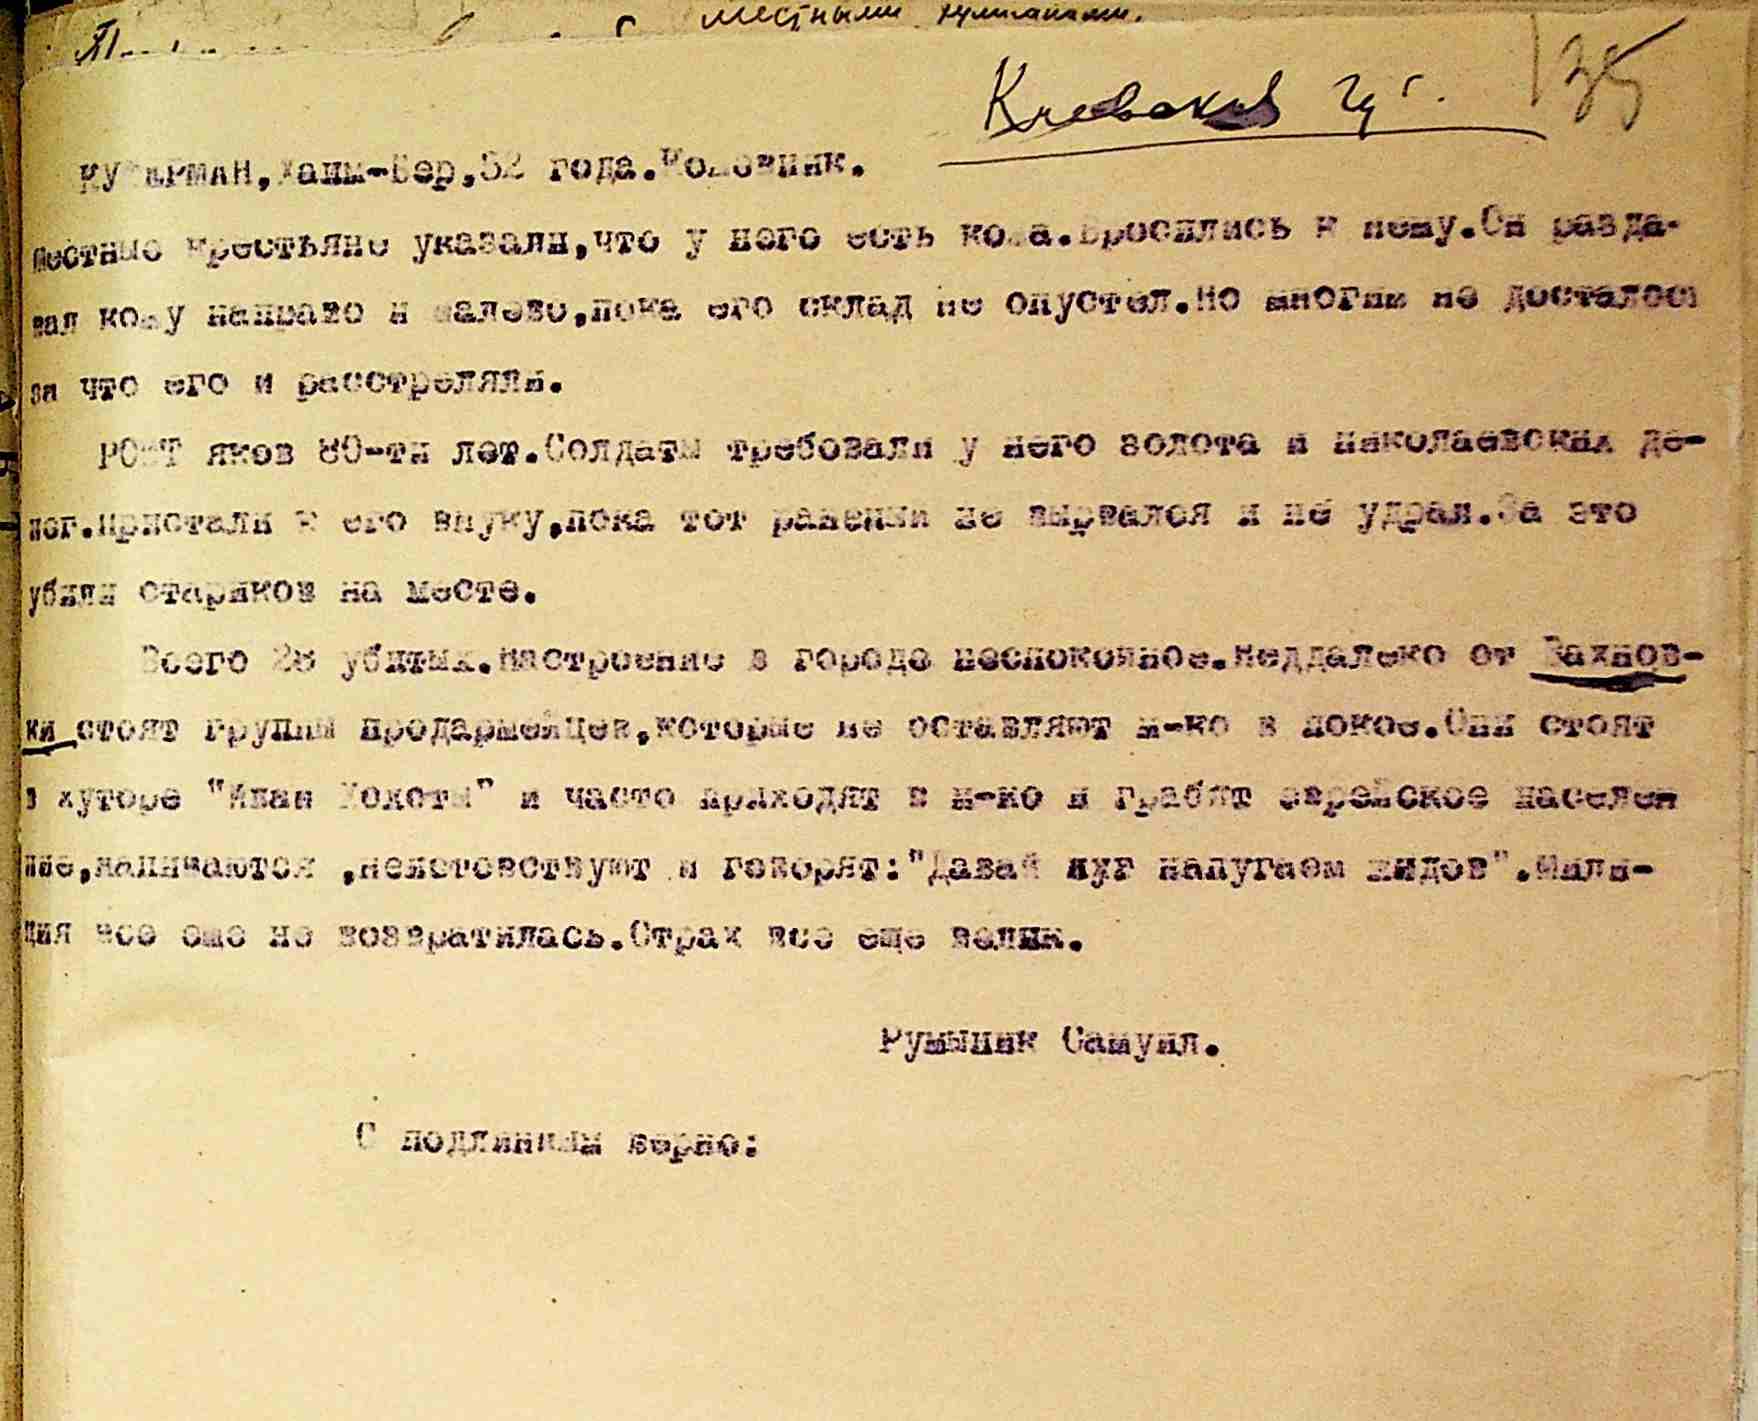 местными хулиганами.
35
КУПЕРМАН,Хаим-Бер,52 года.Кожевник.
Местные крестьяне указали,что у него есть кожа.Бросились к нему.Он разда-
вал кожу направо и налево,пока его склад не опустел.Но многим не досталось
за что его и расстреляли.
Яков 80-ти лет.Солдаты требовали у него золота и николаевских де-
нег.Пристали к его внуку,пока тот раненый не вырвался и не удрал.За это
убили стариков на месте.
Всего 28 убитых.Настроение в городе неспокойное.Неддалеко от Вахнов-
ки стоят группы продармейцев,которые не оставляют м-ко в покое.Они стоят
в хуторе "Иван и часто приходят в м-ко и грабят еврейское населен
ние,напиваются ,неистовствуют и говорят:"Давай нуг напугаем жидов".Мили-
ция все еще не возвратилась.Страх все еще велик.
Румыник Самуил.
С подлинным верно: